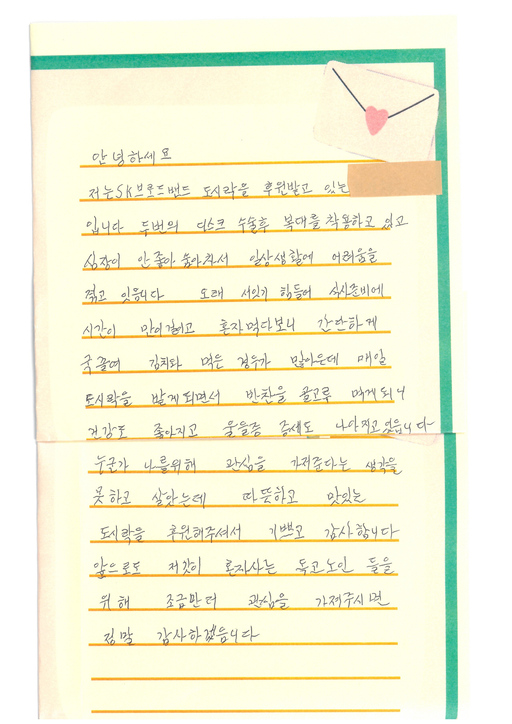 안녕하세요
저는 SK브로드밴드 도시락을 후원받고 있는
입니다 두번의 디스크 수술후 복대를 착용하고 있고
심장이 안좋아 숨이차서 일상생활에 어려움을
겪고 있읍니다 오래 서있기 힘들어 식사준비에
시간이 많이걸리고 혼자먹다보니 간단하게
국끓여 김치와 먹은 경우가 많아은데 매일
도시락을 받게되면서 반찬을 골고루 먹게되니
건강도 좋아지고 우울증 증세도 나아지고있읍니다
누군가 나를위해 관심을 가져준다는 생각을
못하고 살았는데 따뜻하고 맛있는
도시락을 후원해주셔서 기쁘고 감사합니다
앞으로도 저같이 혼자사는 독고노인 들을
위해 조금만더 관심을 가져주시면
정말 감사하겠읍니다